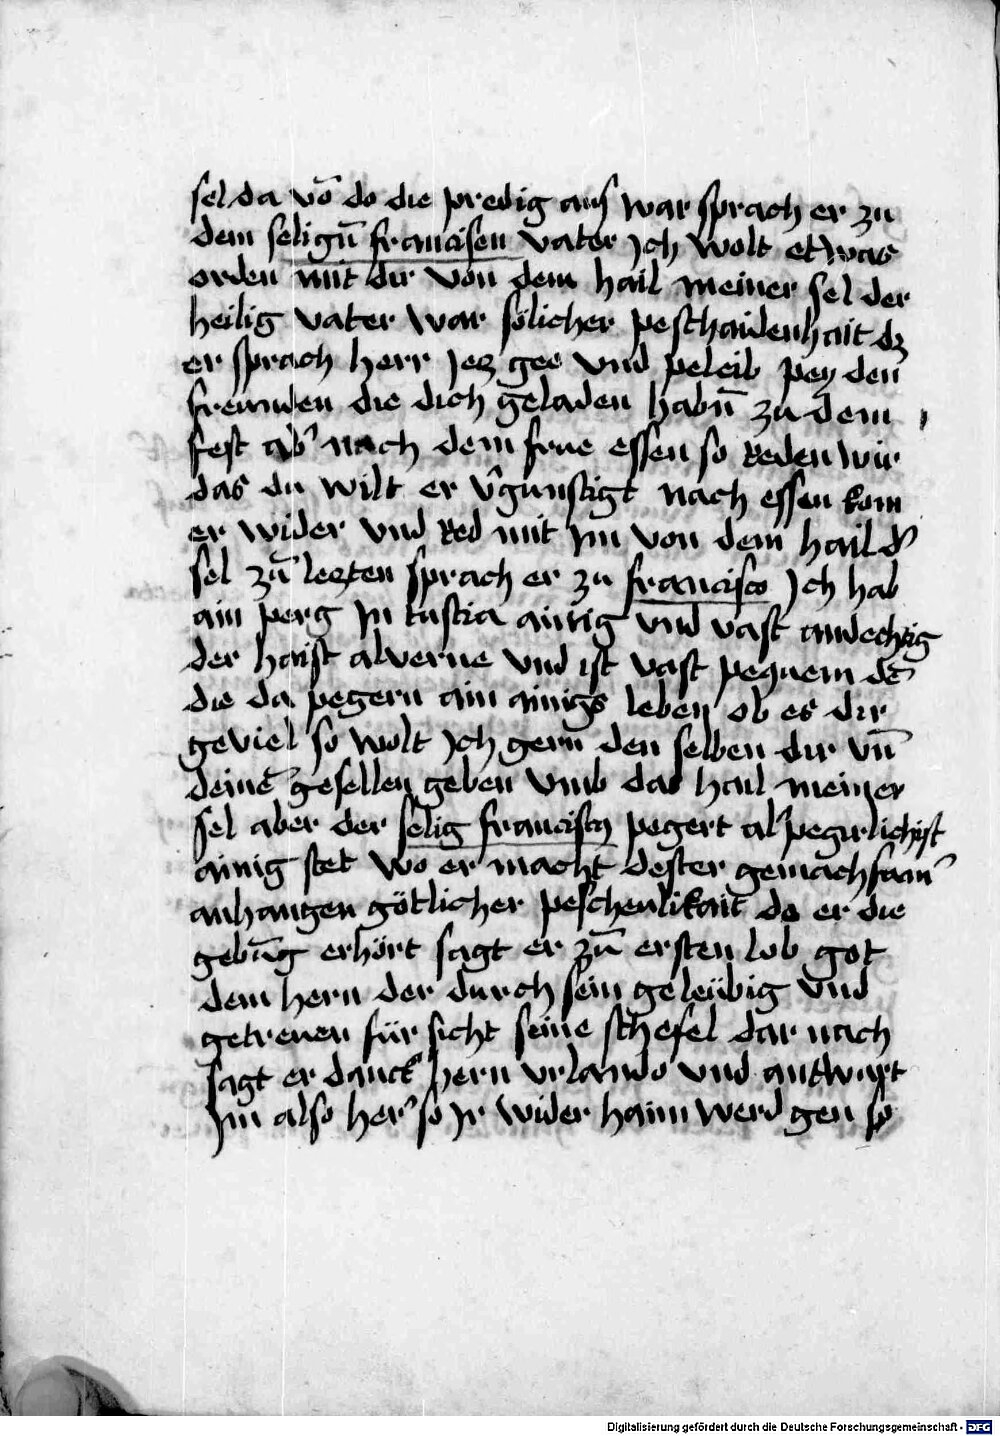 sel da võ do die predig aus war sprach er zu
dem seligñ francisen vater Jch wolt etwas
orden mit dir von dem hail meiner sel der
heilig vater war sölicher peschaidenhait dz
er sprach herr Jez gee vnd peleib pey den
freunden die dich geladen habñ zu dem
fest ab' nach dem frue essen so Reden wir
das du wilt er v'gunstigt nach essen kom
er wider vnd Red mit Jm von dem hail d'
sel zũ lezten sprach er zu francisco Jch hab
ain perg Jn tuscia ainig vnd vast andechtig
der haist alverne vnd ist vast pequem dẽ
die da pegern ain ainigs leben ob es dir
geviel so wolt Jch gern den selben dir vñ
deinẽ gesellen geben vmb das hail meiner
sel aber der selig franciscq pegert al' pegirlichist
ainig stet wo er macht dester gemachsam'
anhangen götlicher peschenlikait do er die
gebũg erhört sagt er zũ ersten lob got
dem hern der durch sein geleübig vnd
getreuen für sicht seine schefel dar nach
sagt er danck hern vrlando vnd antwurt
Jm also her' so Jr wider haim werd gen so
Digitalisierung gefördert durch die Deutsche Forschungsgemeinschaft - DFG